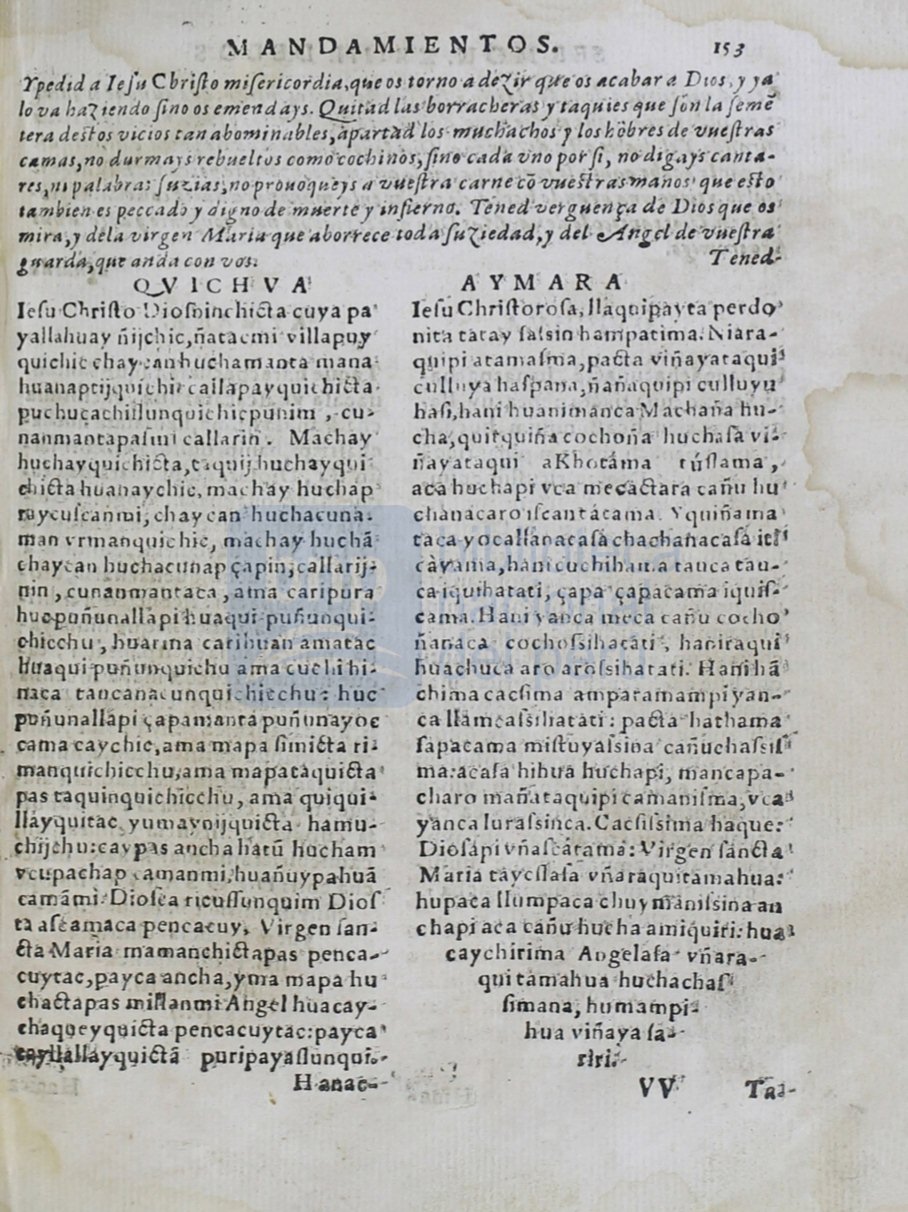 MANDAMIENTOS. 153
Y pedid a Iesu Christo misericordia, que os torno a dezir que os acabara Dios, y ya
lo va haziendo sino os emendays. Quitad las borracheras y taquies que son la semẽ
tera destos vicios tan abominables, apartad los muchachos y los hõbres de vuestras
camas, no durmays rebueltos como cochinos, sino cada vno por si, no digays canta-
res, ni palabras suzias, no prouoqueys a vuestra carne cõ vuestras manos que esto
tambien es peccado y digno de muerte y infierno. Tened verguença de Dios que os
mira, y dela virgen Maria que aborrece toda suziedad, y del Angel de vuestra
guarda, que anda con vos. Tened-
QVICHVA
Iesu Christo Diosninchicta cuya pa
yallahuay ñijchic, ñatacmi villapuy
quichic chaycan huchamanta mana
huanaptijquichic callapayquichicta
puchucachillunquichicpunim, cu-
nanmantapasmi callarin. Machay
huchayquichicta, taquij huchayqui
chicta huanaychic, machay huchap
raycuscanmi, chay can huchacuna-
man vrmanquichic, machay huchã
chaycan huchacunap çapin, callarij-
nin, cunanmantaca, ama caripura
huc puñunallapi huaqui puñunqui-
chicchu, huarma carihuan amatac
huaqui puñunquichu ama cuchi hi-
naca taucanacunquichicchu: huc
puñunallapi çapamanta puñunayoc
cama caychic, ama mapa simicta ri-
manquichicchu, ama mapa taquicta
pas taquinquichicchu, ama quiqui-
llayquitac yumaynijquicta hamu-
chijchu: caypas ancha hatũ hucham
vcupachap camanmi, huañuypa huã
camãmi. Diosca ricussunquim Dios
ta ascamaca pencacuy, Virgen san-
cta Maria mamanchictapas penca-
cuytac, payca ancha, yma mapa hu
chactapas millanmi Angel huacay-
chaqueyquicta pencacuytac: payca
puripayassunqui.
Hanac-
AYMARA
Iesu Christorosa, llaquipayta perdo
nita tatay sasin hampatima. Niara-
quipi atamasma, pacta viñayataqui
culluya haspana, ñañaquipi culluyu
hasi, hani huanimanca Machaña hu-
cha, quirquiña cochoña huchasa vi-
ñayataqui aKhotáma túslama,
aca huchapi vca mecactara cañu hu
chanacaro iscantácama. Yquiñama
taca yocallanacasà chachanacasà its
càyama, hani cuchihama tauca tau-
ca iquihatati, çapa çapacama iquis-
cama. Hani yanca meca cañu cocho
ñanaca cochossihatati, haniraqui
huachuca aro arossihatati. Hani hã
chima cacsima amparamampi yan-
ca llamcassihatati: pacta hathama
sapacama mistuyassina cañuchassis
ma: acasa hihua huchapi, mancapa-
charo mañataquipi camanisma, vca
yanca lurassinca. Cacsissima haque:
Diosápi vñascátama: Virgen sancta
Maria táycssasa vñaraquitamahua:
hupaca llumpaca chuymanissina an
chapi aca cañu hucha amiquiri: hua
caychirima Angelasa vñara-
quitamahua huchachas
simana, humampi-
hua viñaya sa-
riri.
VV Ta-